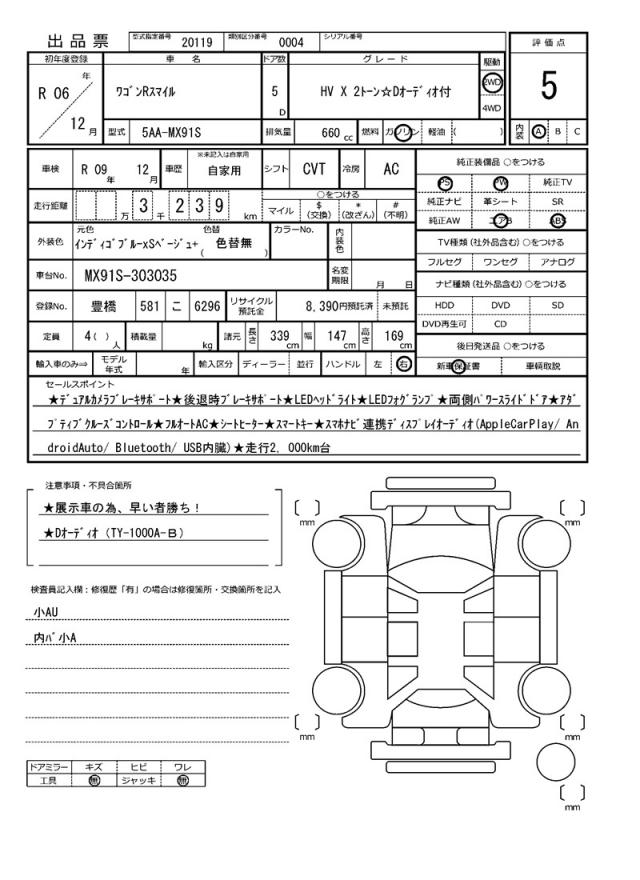 出品票 型式指定番号 20119 類別区分番号 0004 シリアル番号
初年度登録 車名 ドア数 グレード 駆動 評価点
R 06 年 ワゴンRスマイル 5 D HV X 2トーン☆Dオーディオ付 2WD 5
4WD
12 月 型式 5AA-MX91S 排気量 660 cc 燃料 ガソリン 軽油 ( ) 内装 A B C
車検 R 09 年 12 月 車歴 ※未記入は自家用 自家用 シフト CVT 冷房 AC 純正装備品 ○をつける
PS PW 純正TV
走行距離 万 3 千 2 3 9 km ○をつける 純正ナビ 革シート SR
マイル $ (交換) * (改ざん) # (不明) 純正AW エアB ABS
外装色 元色 色替 カラーNo. 内装色 TV種類 (社外品含む) ○をつける
インディゴブルーxSベージュ+ ( 色替無 ) フルセグ ワンセグ アナログ
車台No. MX91S-303035 名変期限 月 日 ナビ種類 (社外品含む) ○をつける
登録No. 豊橋 581 こ 6296 リサイクル預託金 8,390円預託済 未預託 HDD DVD SD
DVD再生可 CD
定員 4( ) 人 積載量 kg 諸元 長さ 339 cm 幅 147 cm 高さ 169 cm 後日発送品 ○をつける
輸入車のみ⇒ モデル年式 年 輸入区分 ディーラー 並行 ハンドル 左 右 新車保証書 車輌取説
セールスポイント
★デュアルカメラブレーキサポート★後退時ブレーキサポート★LEDヘッドライト★LEDフォグランプ★両側パワースライドドア★アダ
プティブクルーズコントロール★フルオートAC★シートヒーター★スマートキー★スマホナビ連携ディスプレイオーディオ(AppleCarPlay/ An
droidAuto/ Bluetooth/ USB内臓)★走行2, 000km台
注意事項・不具合箇所
★展示車の為、早い者勝ち!
★Dオーディオ (TY-1000A-B)
検査員記入欄:修復歴「有」の場合は修復箇所・交換箇所を記入
小AU
内バ小A
ドアミラー キズ ヒビ ワレ
工具 無 ジャッキ 無
mm
mm
mm
mm
mm